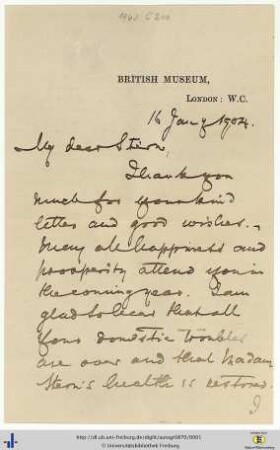 BRITISH MUSEUM,
LONDON: W.C.
16 Jany 1904.
My dear Stern,
Thank you
much for your kind
letter and good wishes.-
May all happiness and
prosperity attend you in
the coming year. I am
glad to hear that all
your domestic troubles
are over and that Madam
Stern's health is restored.
I
http://dl.ub.uni-freiburg.de/diglit/autogr0870/0001
© Universitätsbibliothek Freiburg